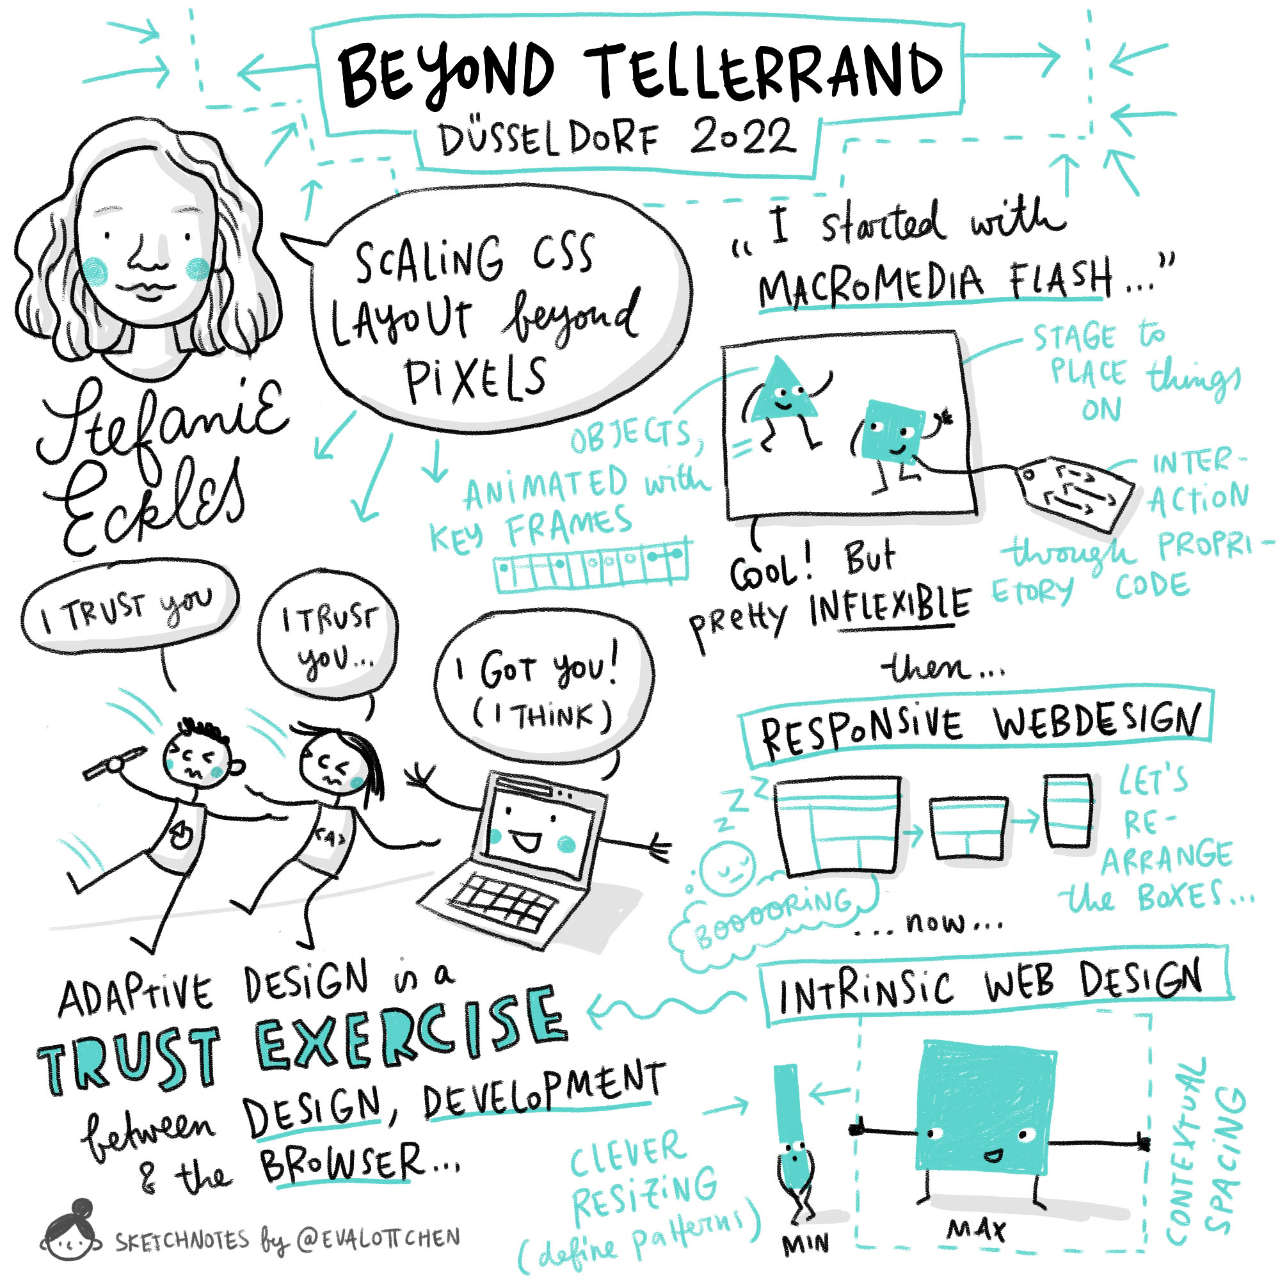 BEYOND TELLERRAND
DÜSSELDORF 2022
SCALING CSS
LAYOUT beyond
PIXELS
Stefanie
Eckles
„I started with
MACROMEDIA FLASH..."
STAGE to
PLACE things
ON
OBJECTS,
ANIMATED with
KEY FRAMES
INTER-
ACTION
through PROPRI-
ETORY CODE
COOL! BUT
PRETTY INFLEXIBLE
then...
RESPONSIVE WEBDESIGN
LET'S
RE-
ARRANGE
the BOXES...
Z Z Z Z
BOOOORING
...now...
INTRINSIC WEB DESIGN
CLEVER
RESIZING
(define patterns)
MIN
MAX
CONTEXTUAL
SPACING
I TRUST you
I TRUST
you...
I GOT you!
(I THINK)
<A>
ADAPTIVE DESIGN is a
TRUST EXERCISE
between DESIGN, DEVELOPMENT
& the BROWSER...
SKETCHNOTES by @EVALOTTCHEN